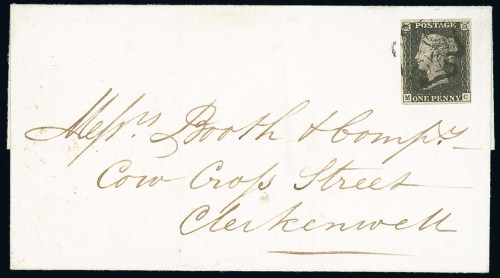 POSTAGE
M C
ONE PENNY
Meſsrs Booth & Compy
Cow Croſs Street
Clerkenwell